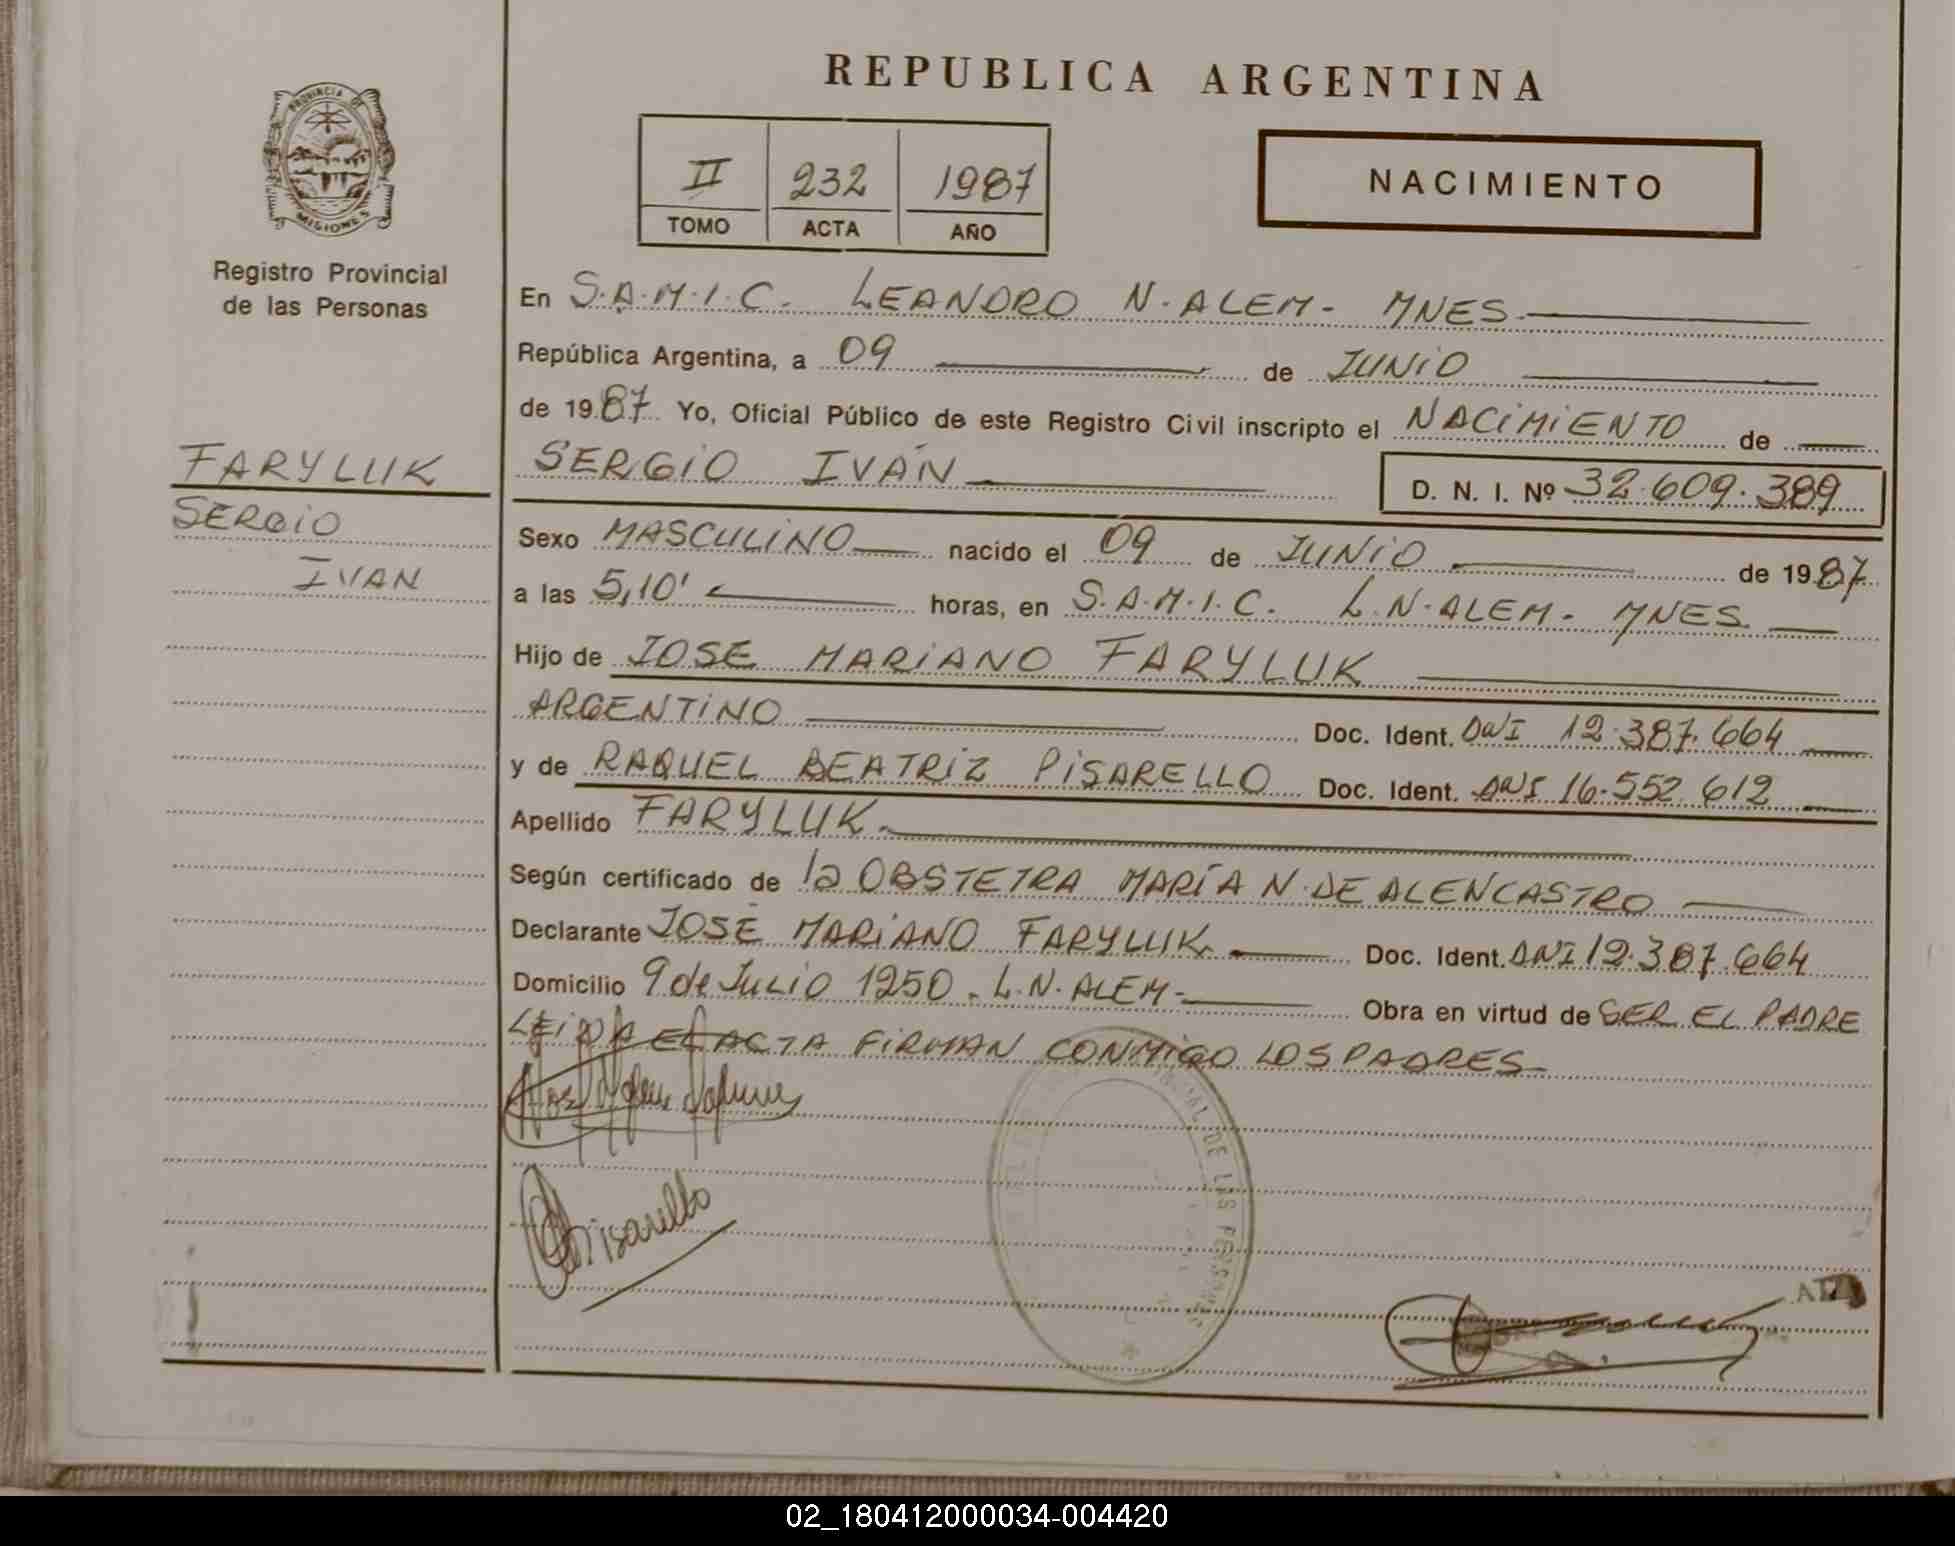 REPUBLICA ARGENTINA
PROVINCIA DE
MISIONES
Registro Provincial
de las Personas
II 232 1987
TOMO ACTA AÑO
NACIMIENTO
En S.A.M.I.C. LEANDRO N. ALEM - MNES
República Argentina, a 09 de JUNIO
de 1987 Yo, Oficial Público de este Registro Civil inscripto el NACIMIENTO de
FARYLUK
SERGIO
IVAN
SERGIO IVÁN D. N. I. Nº 32.609.389
Sexo MASCULINO nacido el 09 de JUNIO de 1987
a las 5,10' horas, en S.A.M.I.C. L.N. ALEM - MNES
Hijo de JOSE MARIANO FARYLUK
ARGENTINO Doc. Ident. DNI 12.387.664
y de RAQUEL BEATRIZ PISARELLO Doc. Ident. DNI 16.552.612
Apellido FARYLUK
Según certificado de la OBSTETRA MARÍA N. DE ALENCASTRO
Declarante JOSE MARIANO FARYLUK Doc. Ident. DNI 12.387.664
Domicilio 9 de JULIO 1250 - L.N. ALEM - Obra en virtud de SER EL PADRE
LEIDA EL ACTA FIRMAN CONMIGO LOS PADRES
DE LAS PERSONAS
Pisarello
02_180412000034-004420